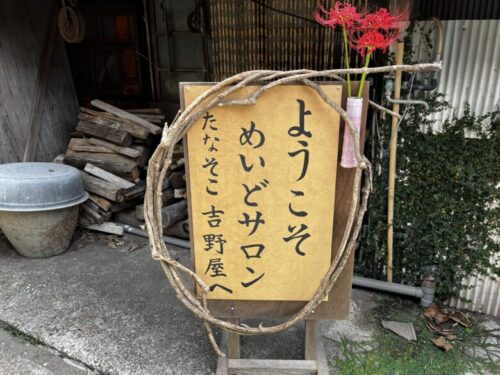 ようこそ
めいどサロン
たなそこ 吉野屋へ